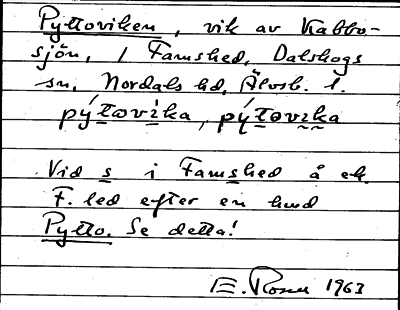 Pyttoviken, vik av Kabbo-
sjön, i Famshed, Dalskogs
sn, Nordals hd, Älvsb. l.
pýtωvika, pýtωvika
Vid s i Famshed å ek.
F. led efter en hund
Pytto. Se detta!
E. Rosen 1963